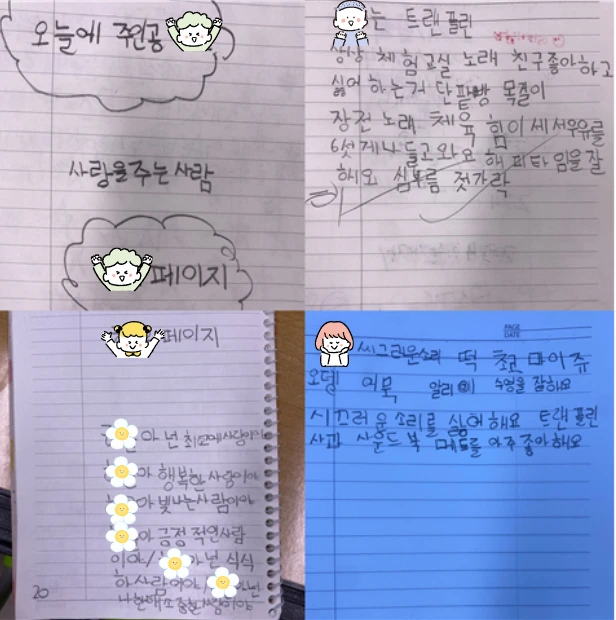 오늘에 주인공
사랑을 주는 사람
페이지
는 트랜플린
상상 체험교실 노래 친구좋아하고
싫어 하는거 단팥빵 목걸이
장전 노래 체육 힘이 세서우유를
6섯개나 들고와요 해피타임을잘
해요 심부름 젓가락
페이지
아 넌 최고에사람이야
아 행복한 사람이야
아 빛나는사람이야
아 긍정적인사람
이야/ 아 넌 식식
하사람이야/ 아넌
나한태 소중한사람이야
20
PAGE
DATE
씨그러운소리 떡 초 마이쥬
오뎅 어묵 알러 수영을 잘해요
시끄러운소리를 싫어해요 트랜플린
사과 사운드북 을 아주좋아해요